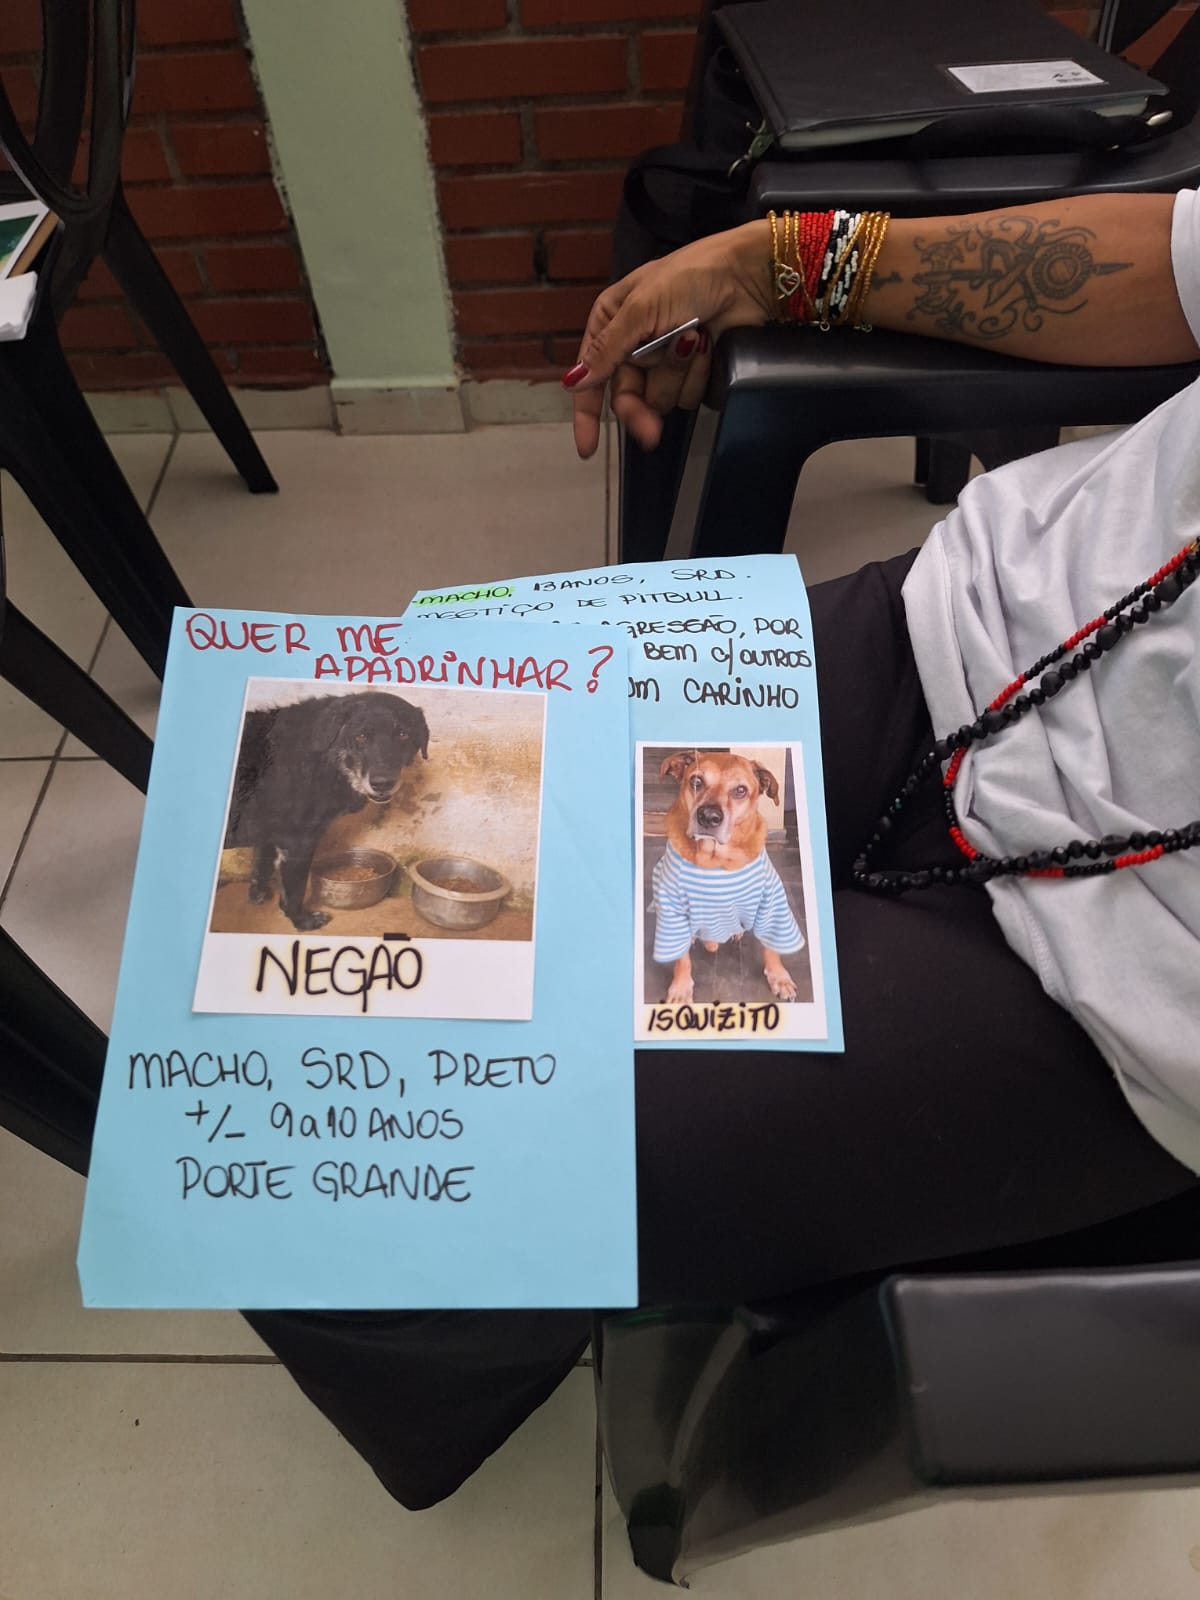 QUER ME
APADRINHAR?
NEGÃO
MACHO, SRD, PRETO
+/- 9 a 10 ANOS
PORTE GRANDE
MACHO, 13 ANOS, SRD.
MESTIÇO DE PITBULL.
AGRESSÃO, POR
BEM C/ OUTROS
UM CARINHO
ISQUIZITO